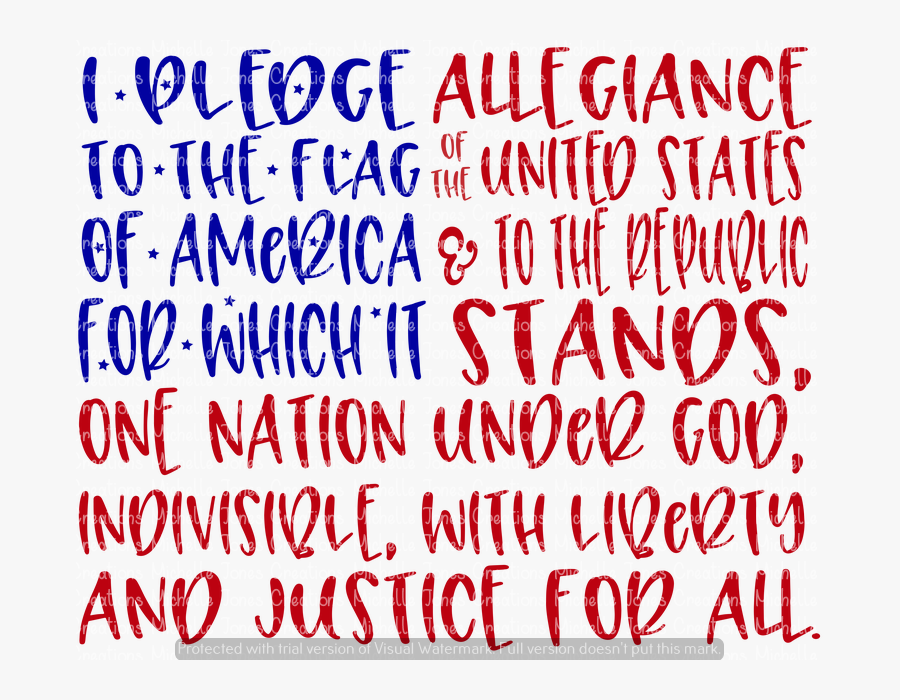 I PLEDGE ALLEGIANCE
TO THE FLAG OF THE UNITED STATES
OF AMERICA & TO THE REPUBLIC
FOR WHICH IT STANDS,
ONE NATION UNDER GOD,
INDIVISIBLE, WITH LIBERTY
AND JUSTICE FOR ALL.
Protected with trial version of Visual Watermark. Full version doesn't put this mark.